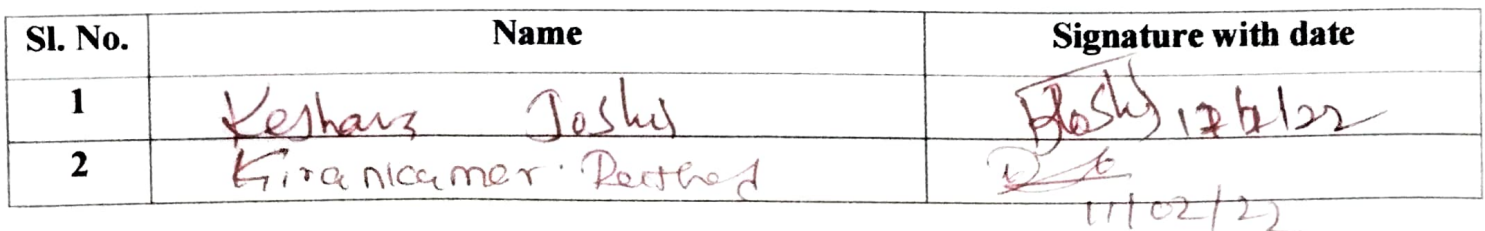 Sl. No. Name Signature with date
1 Keshav Joshi
2 Kirankumar Rathod
11/02/22